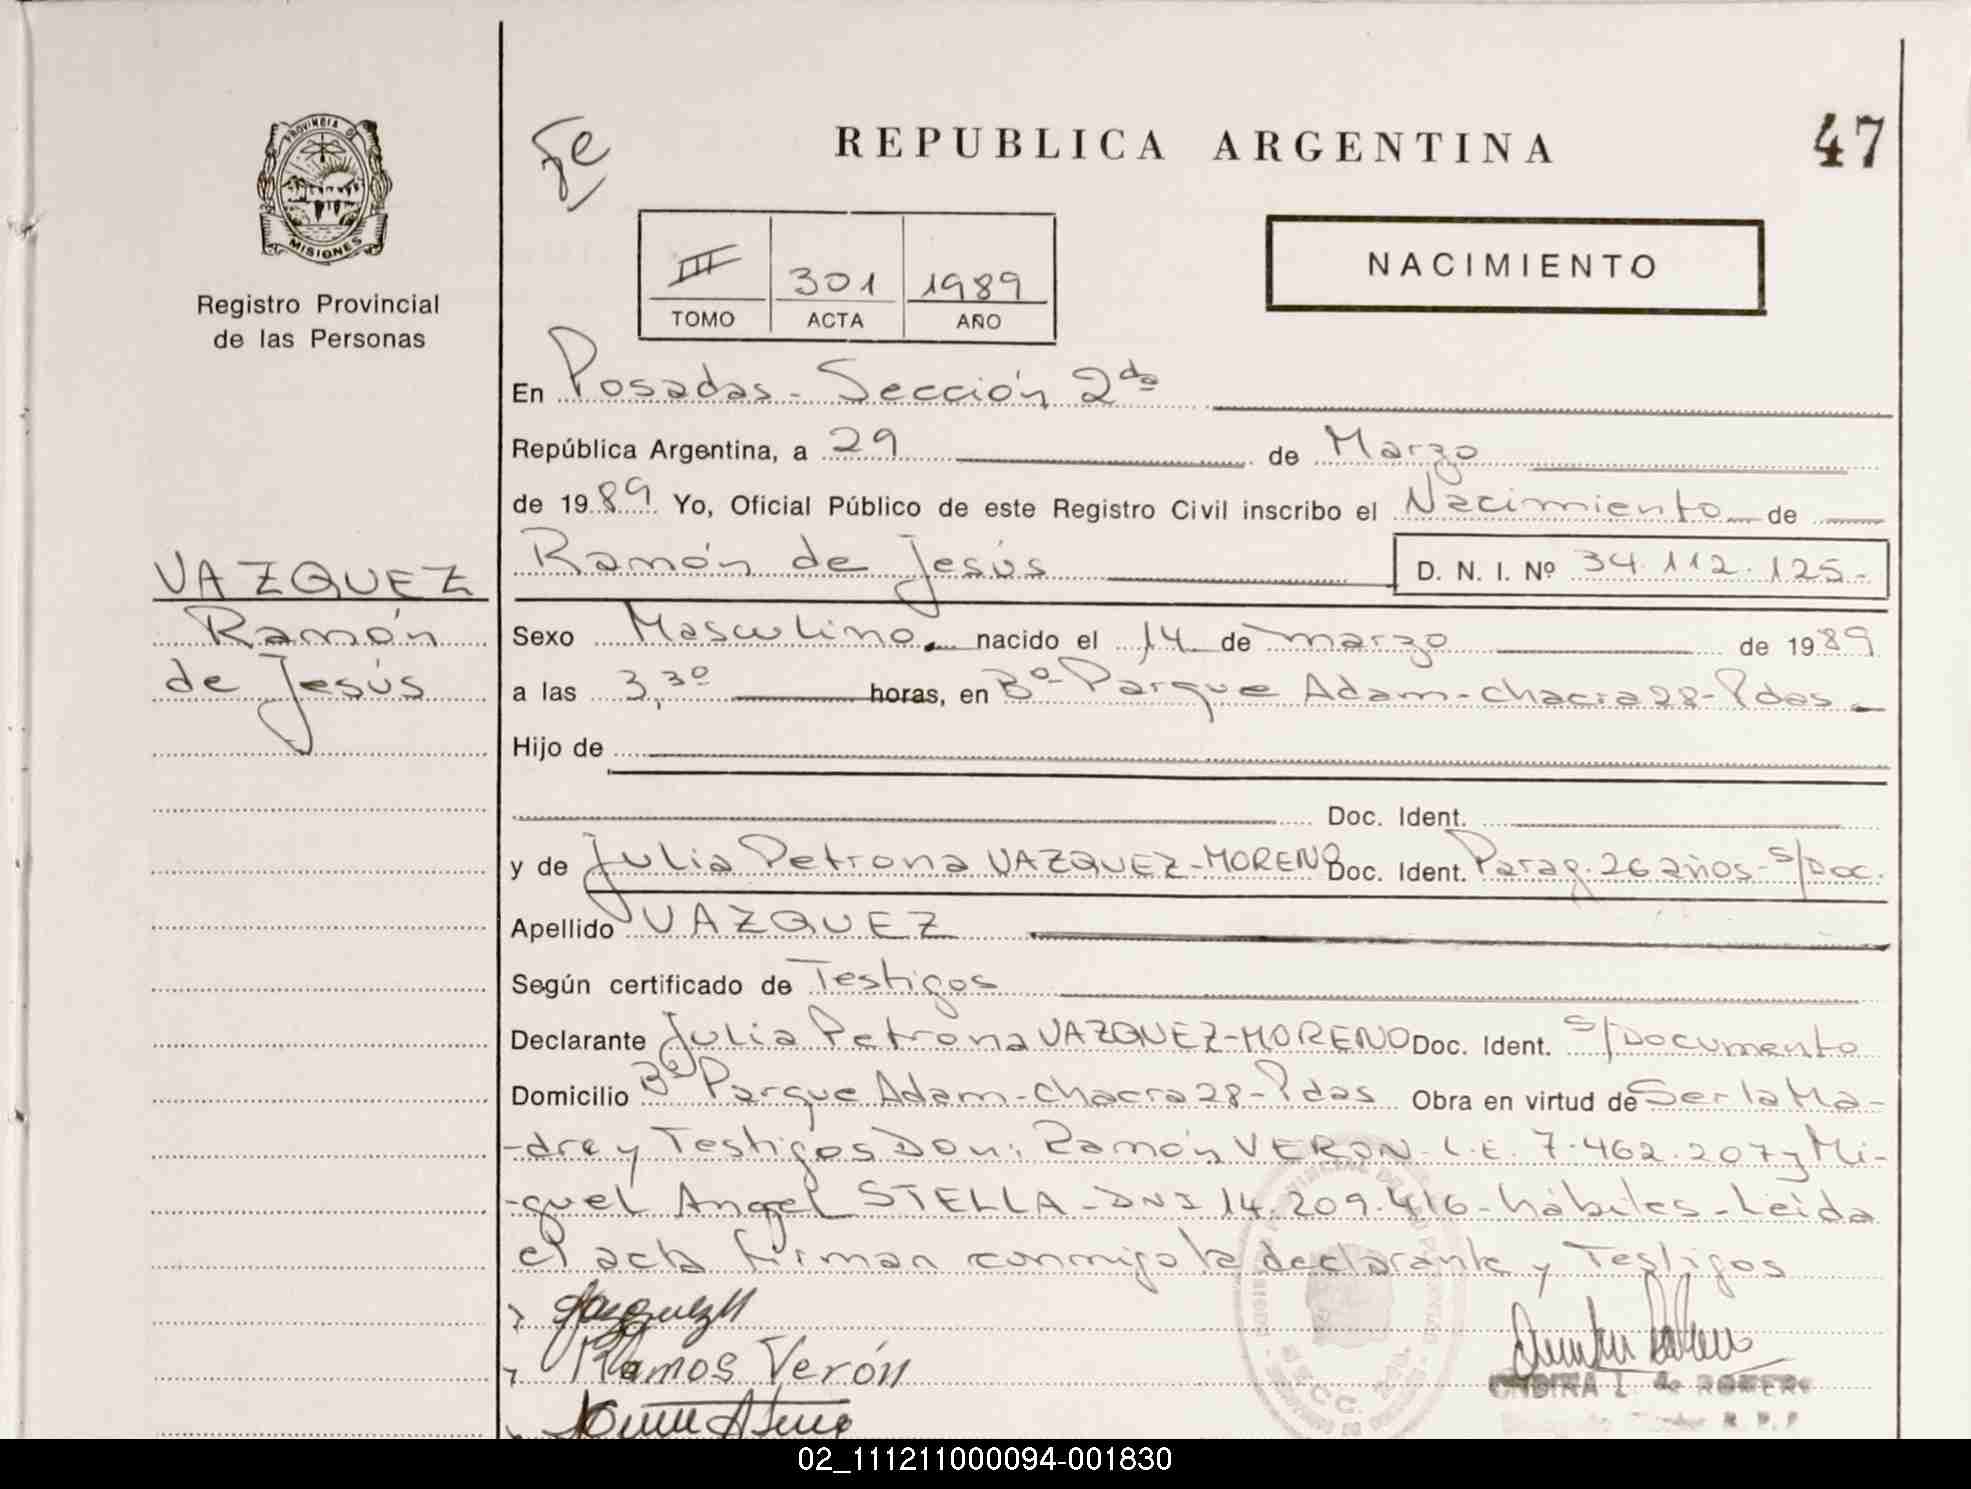 PROVINCIA DE
MISIONES
Registro Provincial
de las Personas
VAZQUEZ
Ramón
de Jesús
REPUBLICA ARGENTINA
47
III 301 1989
TOMO ACTA AÑO
NACIMIENTO
En Posadas - Sección 2da
República Argentina, a 29 de Marzo
de 1989 Yo, Oficial Público de este Registro Civil inscribo el Nacimiento de
Ramón de Jesús D. N. I. Nº 34.112.125.-
Sexo Masculino. nacido el 14 de marzo de 1989
a las 3,30 horas, en Bº Parque Adam-chacra 28-Pdas.
Hijo de
Doc. Ident.
y de Julia Petrona VAZQUEZ-MORENO Doc. Ident. Parag. 26 años-s/Doc.
Apellido VAZQUEZ
Según certificado de Testigos
Declarante Julia Petrona VAZQUEZ-MORENO Doc. Ident. s/Documento
Domicilio Bº Parque Adam-chacra 28-Pdas Obra en virtud de Ser la Ma-
-dre y Testigos Don: Ramón VERON-L.E. 7.462.207 y Mi-
-guel Angel STELLA-DNI 14.209.416-hábiles-Leida
el acta firman conmigo la declarante y Testigos
Vazquez
Ramos Verón
ONDINA L de ROMERO
02_111211000094-001830